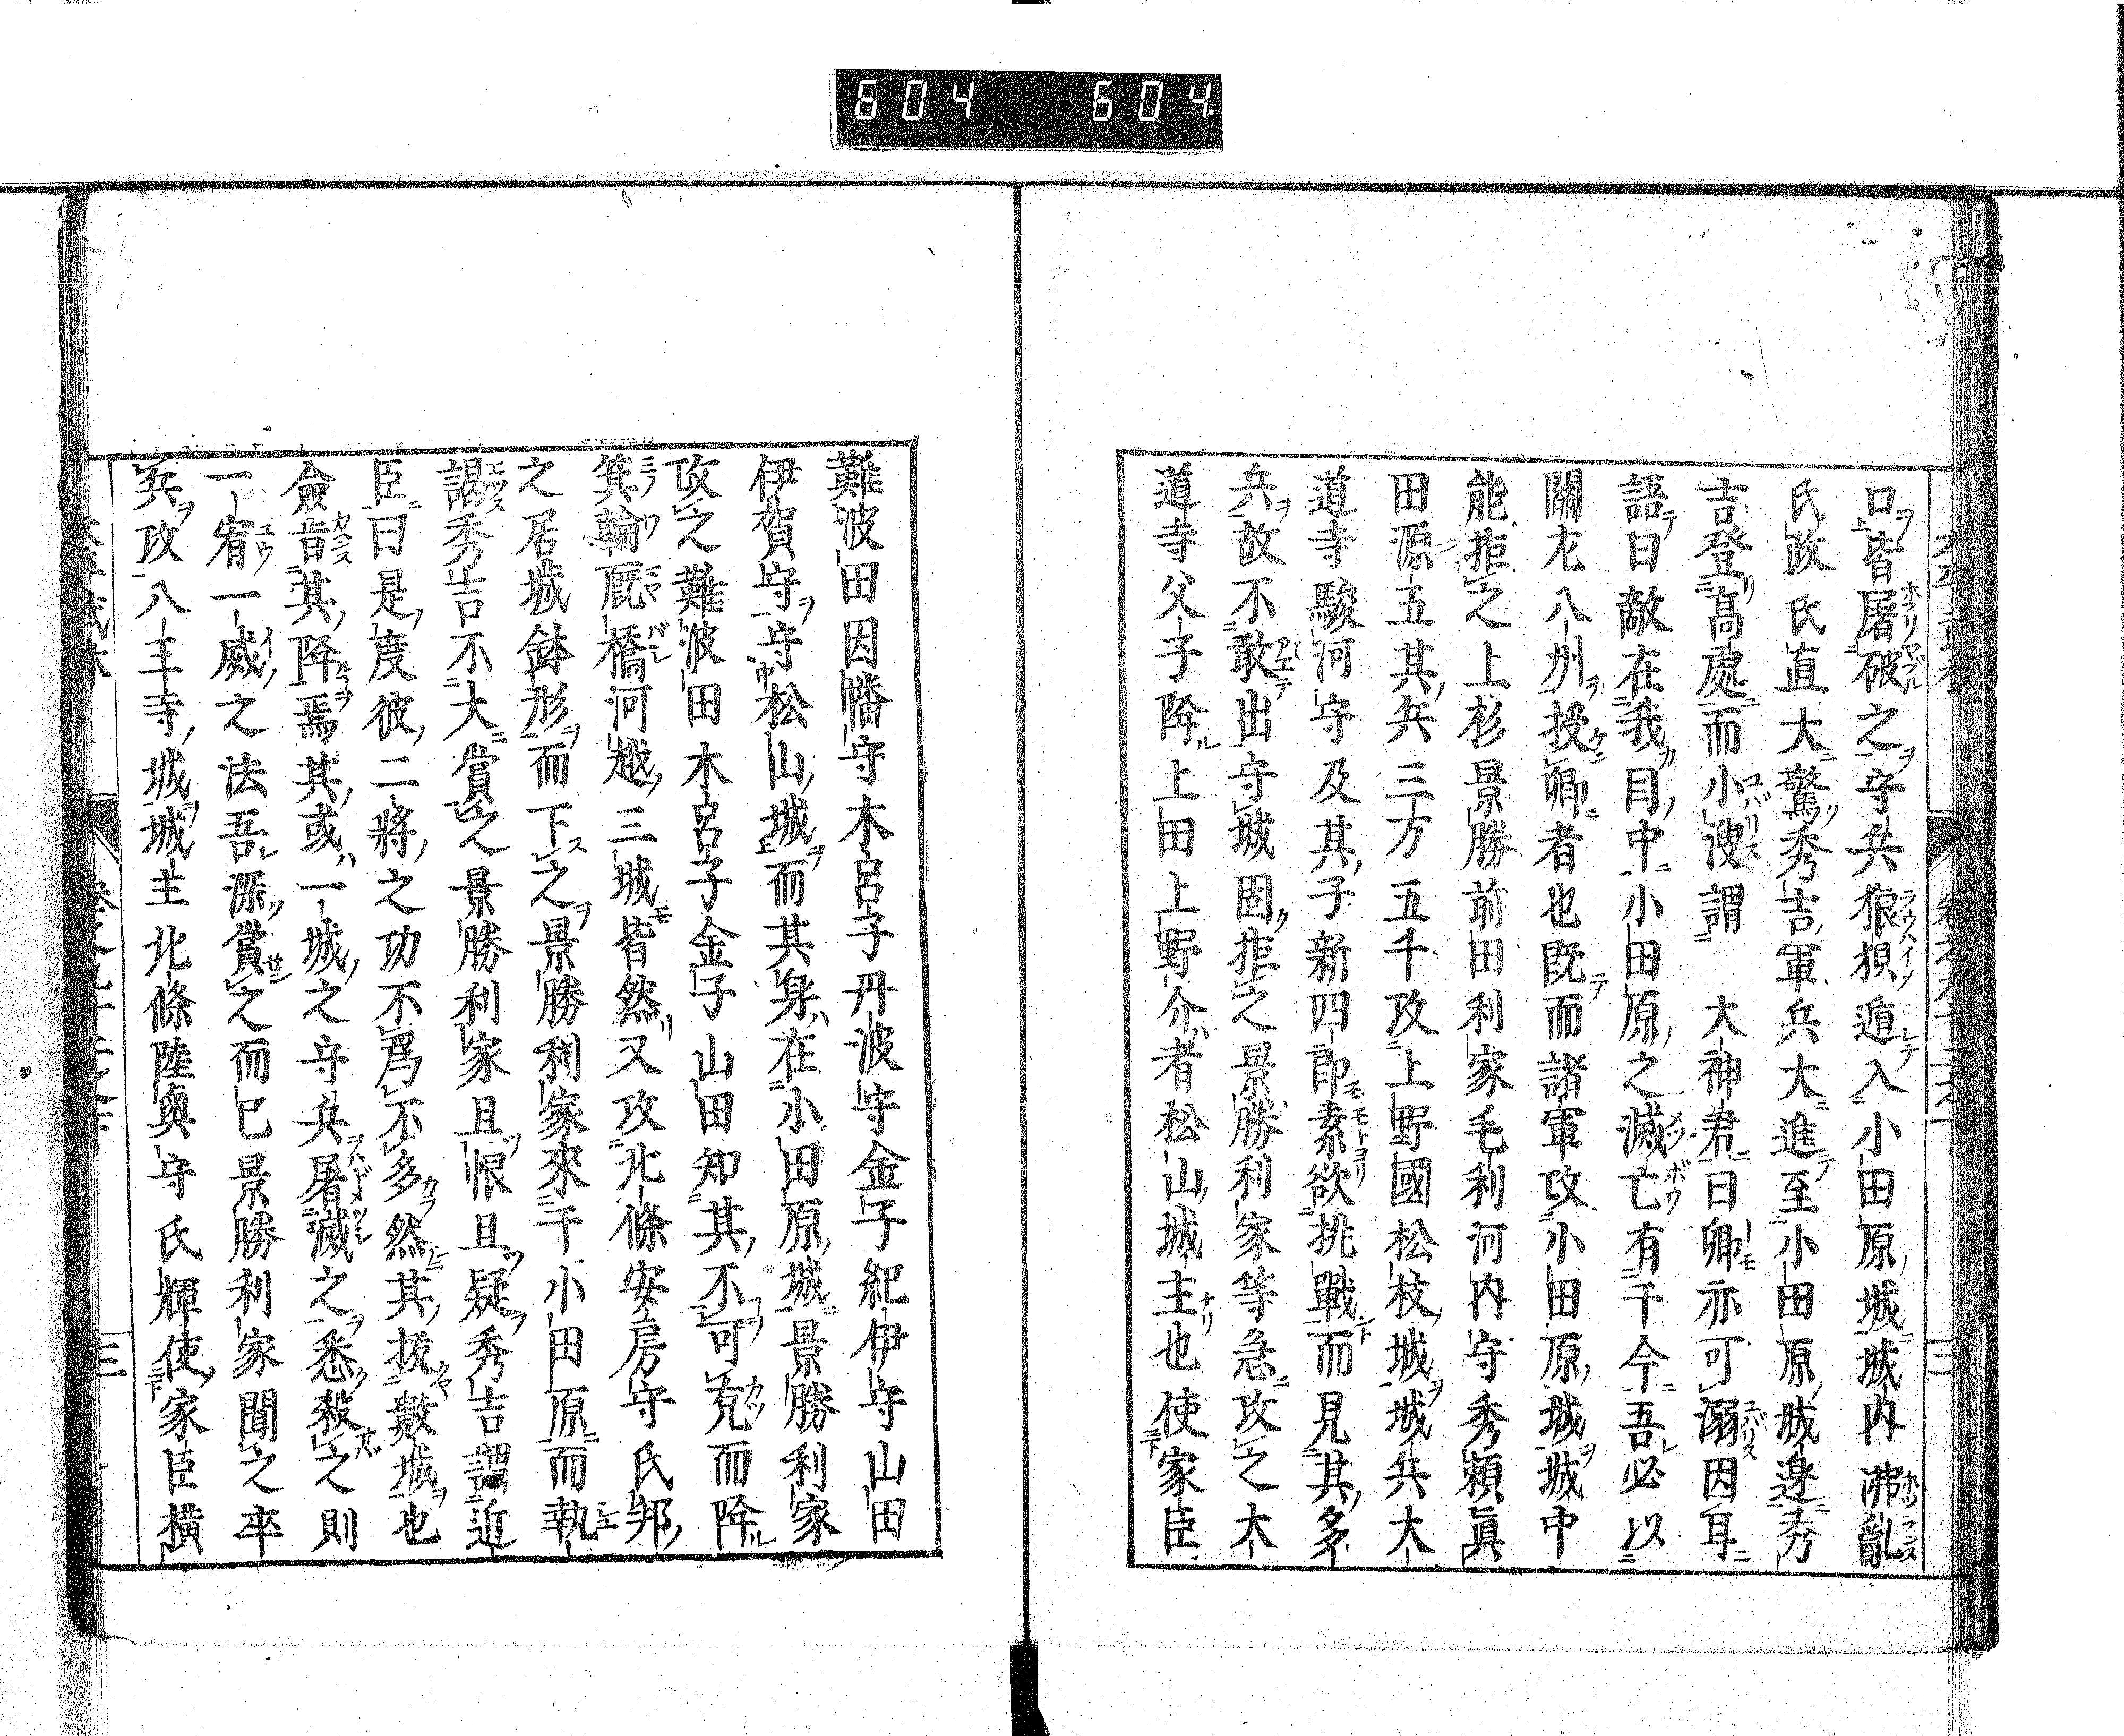 604 604
口皆屠破之守兵狼狽遁入小田原城城内沸亂
氏政氏直大驚秀吉軍兵大進至小田原城邊秀
吉登高處而小溲謂 大神君曰卿亦可溺因耳
語曰敵在我目中小田原之滅亡有于今吾必以
關左八州授卿者也既而諸軍攻小田原城城中
能拒之上杉景勝前田利家毛利河内守秀頼眞
田源五其兵三万五千攻上野國松枝城城兵大
道寺駿河守及其子新四郎素欲挑戰而見其多
兵故不敢出守城固拒之景勝利家等急攻之大
道寺父子降上田上野介者松山城主也使家臣
難波田因幡守木呂子丹波守金子紀伊守山田
伊賀守守松山城而其身在小田原城景勝利家
攻之難波田木呂子金子山田知其不可克而降
箕輪厩橋河越三城皆然又攻北條安房守氏邦
之居城鉢形而下之景勝利家來于小田原而執
謁秀吉不大賞之景勝利家且恨且疑秀吉謂近
臣曰是度彼二將之功不爲不多然其拔數城也
僉肯其降焉其或一城之守兵屠滅之悉殺之則
一宥一威之法吾深賞之而已景勝利家聞之卒
兵攻八王寺城城主北條陸奥守氏輝使家臣横
三
三